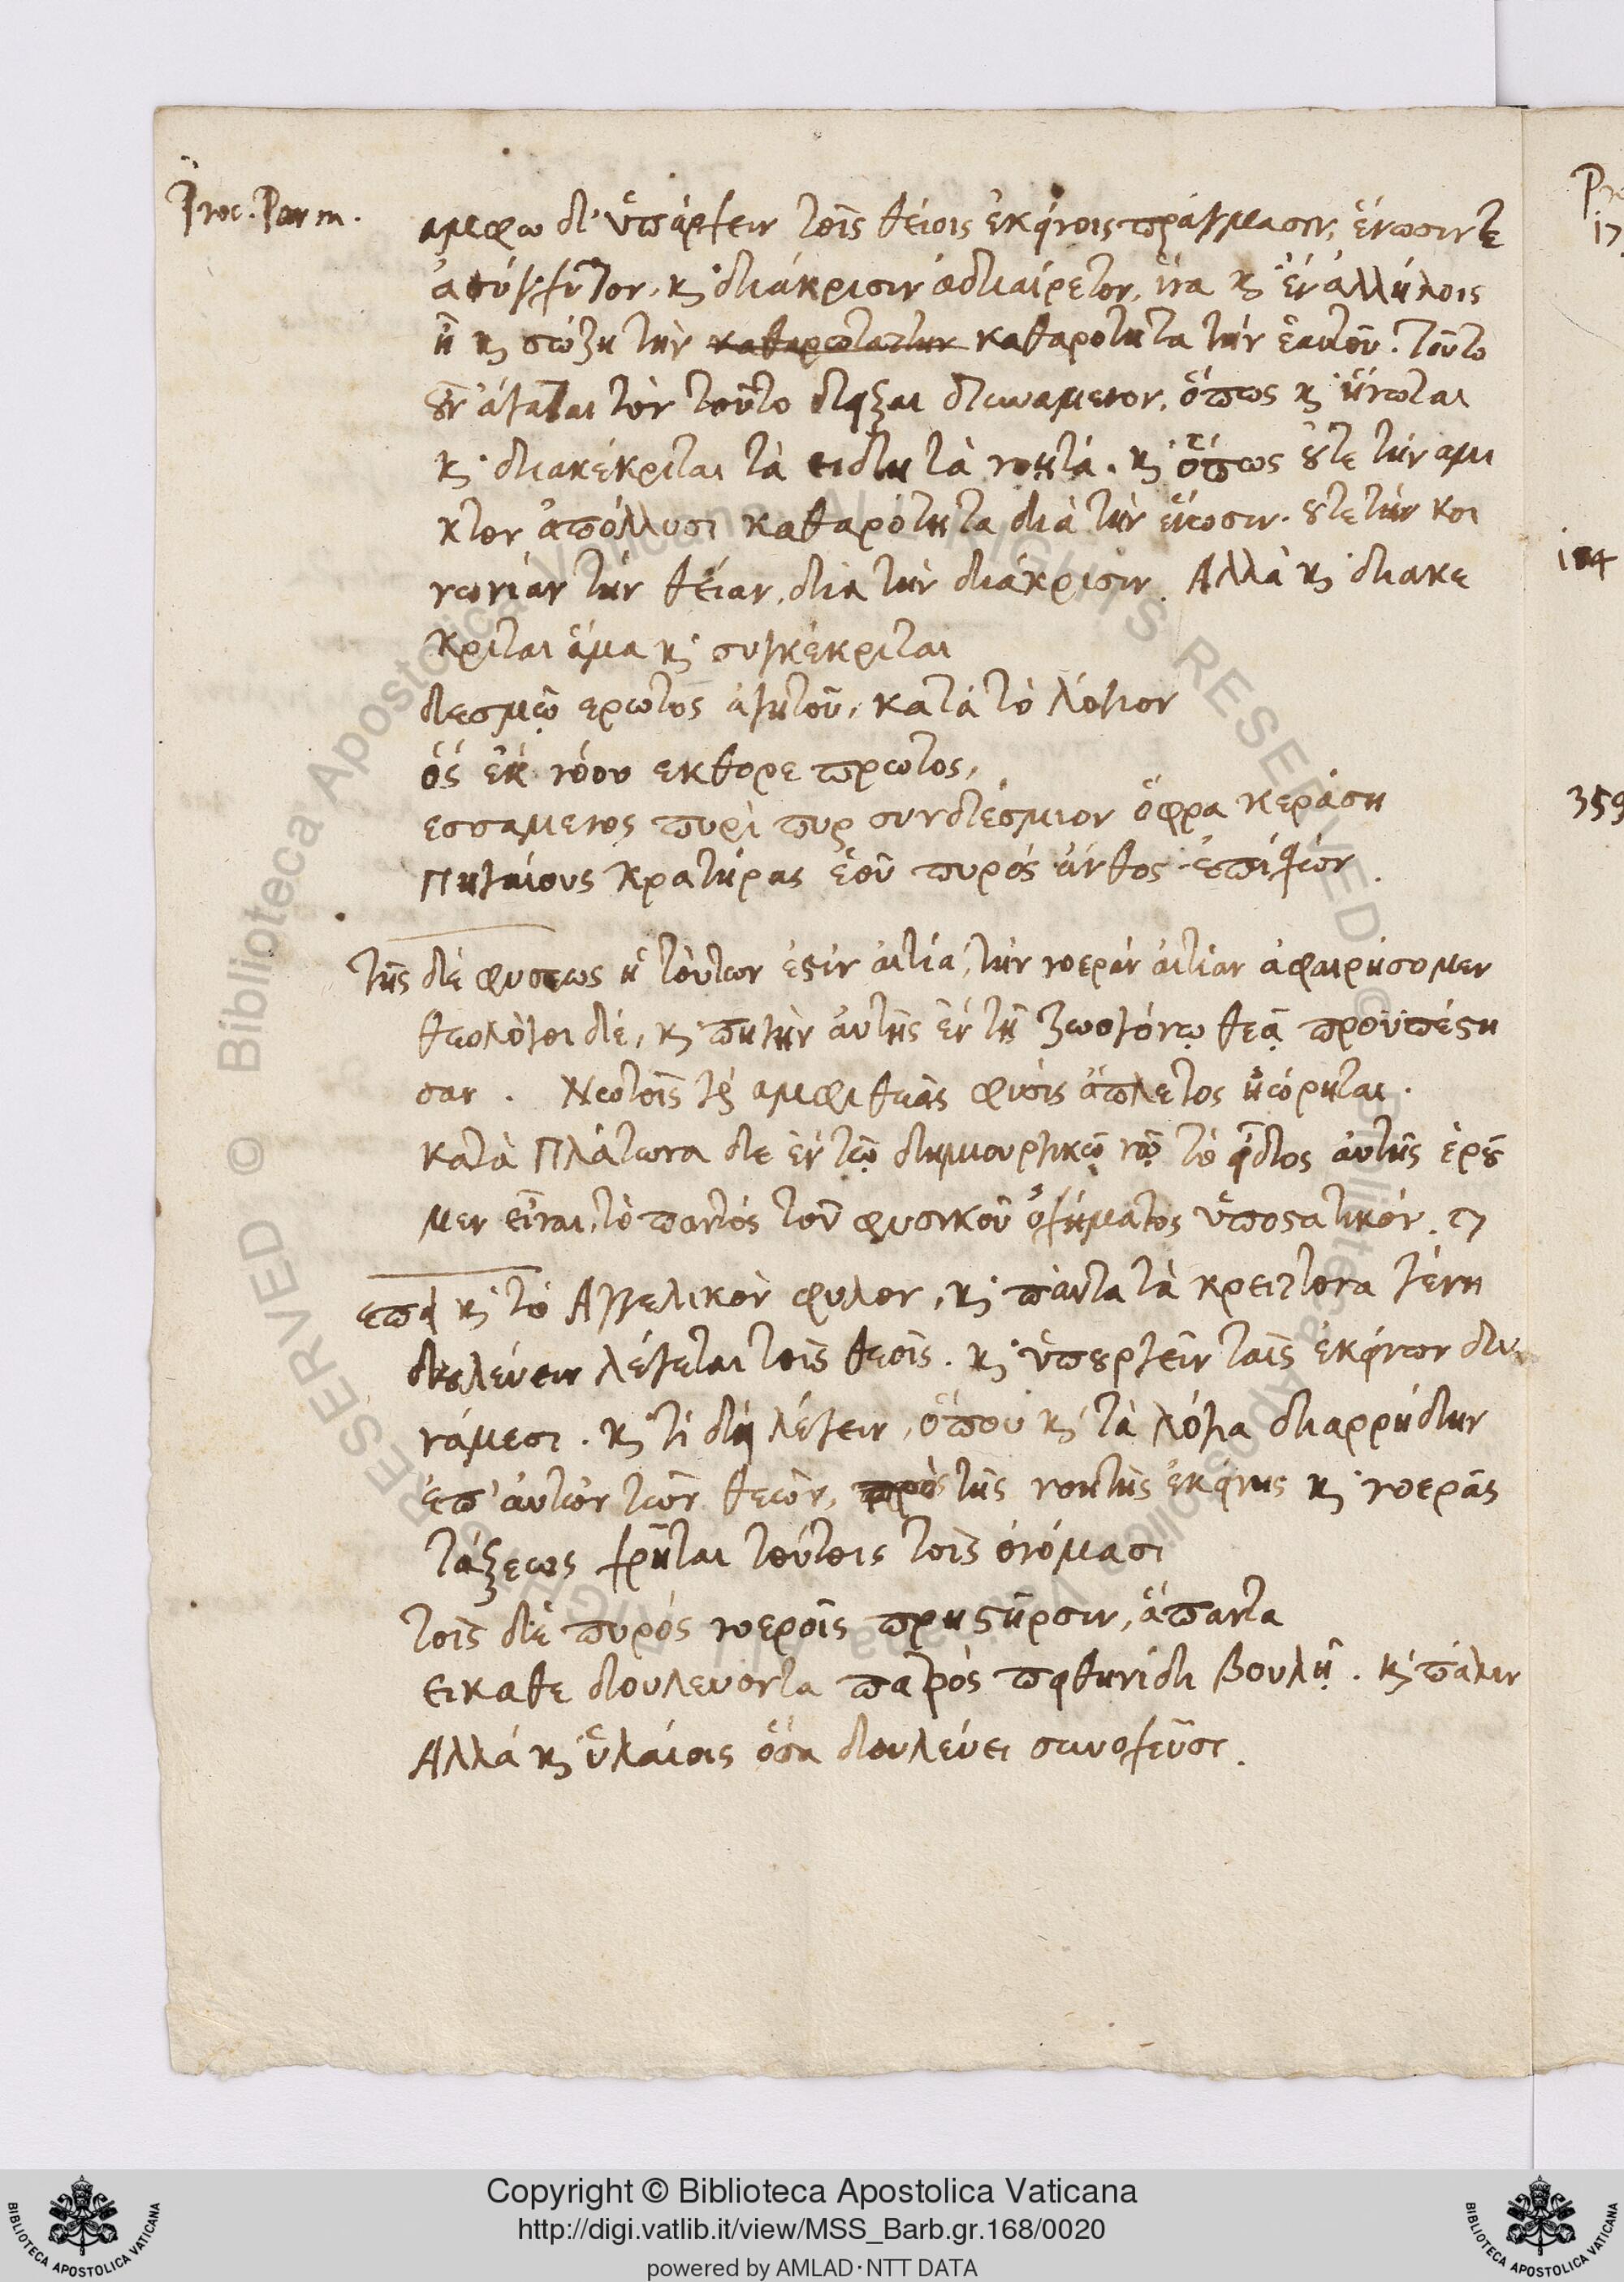 Proc. Parm.
αμφω δ' ὑπάρχειν τοῖς θείοις ἐκείνοις πράγμασιν, ἕνωσιν τε
ἀσύγχυτον, κ̀ διάκρισιν ἀδιαίρετον, ἵνα κ̀ ἐν ἀλλήλοις
ῆ κ̀ σώζη τὴν καθαρωτατην καθαροτητα τήν ἑαυτοῦ. τοῦτο
οὖν ἄγαται τὸν τοῦτο δειξαι δυναμενον, ὅπως κ̀ ἥνωται
κ̀ διακέκριται τὰ ειδη τὰ νοητά. κ̀ ὅπως ουτε τήν αμι
κτον ἀπόλλυσι καθαρότητα διὰ τὴν ἕνωσιν. ουτε τὴν κοι
νωνίαν τὴν θείαν, δια τὴν διάκρισιν. Αλλὰ κ̀ διακε
κριται ἅμα κ̀ συγκέκριται
δεσμῶ ερωτος ἀγητοῦ, κατά τὸ λόγιον
ὅς ἐκ νόου εκθορε πρωτος,
εσσαμενος πυρὶ πυρ συνδέσμιον ὄφρα κεράση
Πηγαίους κρατήρας ἑοῦ πυρός ἄνθος ἐπισχών.
τῆς δέ φυσεως ἡ τούτων ἐστίν αιτία, τήν νοερὰν αἰτίαν ἀφαιρήσομεν
θεολόγοι δέ, κ̀ πηγὴν ἀυτῆς ἐν τῆ ζωογόνῳ θεᾷ προϋπέστη
σαν. Νωτοῖς δ' αμφι θεᾶς φύσις ἄπλετος ἠώρηται.
κατὰ Πλάτωνα δε ἐν τῶ δημιουργικῶ νῷ τὸ εἶδος ἀυτῆς ἐροῦ
μεν εἶναι, τὸ παντός τοῦ φυσικοῦ ὀχήματος ὑποστατικόν. 
επεὶ κ̀ τὸ Αγγελικὸν φυλον, κ̀ πάντα τὰ κρειττονα γένη
δουλεύειν λέγεται τοῖς θεοῖς. κ̀ ὑπουργεῖν ταῖς ἐκείνων δυ
νάμεσι. κ̀ τί δεῖ λέγειν, ὅπου κ̀ τὰ λόγια διαρρήδην
ἐπ' ἀυτῶν τῶν θεῶν, πρὸ τῆς νοητῆς ἐκείνης κ̀ νοερᾶς
τάξεως χρῆται τούτοις τοῖς ὀνόμασι
τοῖς δὲ πυρός νοεροῖς πρηστῆρσιν, ἅπαντα
εικαθε δουλευοντα πατρός πειθηνίδι βουλῆ. κ̀ πάλιν
Αλλά κ̀ ὑλαίοις ὅσα δουλεύει συνοχεῦσι.
184
359
Copyright © Biblioteca Apostolica Vaticana
http://digi.vatlib.it/view/MSS_Barb.gr.168/0020
powered by AMLAD·NTT DATA
BIBLIOTECA APOSTOLICA VATICANA
BIBLIOTECA APOSTOLICA VATICANA